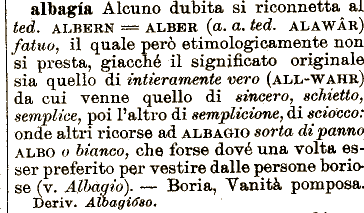 albagía Alcuno dubita si riconnetta al
ted. ALBERN = ALBER (a. a. ted. ALAWÂR)
fatuo, il quale però etimologicamente non
si presta, giacché il significato originale
sia quello di intieramente vero (ALL-WAHR)
da cui venne quello di sincero, schietto,
semplice, poi l'altro di semplicione, di sciocco:
onde altri ricorse ad ALBAGIO sorta di panno
ALBO o bianco, che forse dové una volta es-
ser preferito per vestire dalle persone borio-
se (v. Albagio). — Boria, Vanità pomposa.
Deriv. Albagióso.